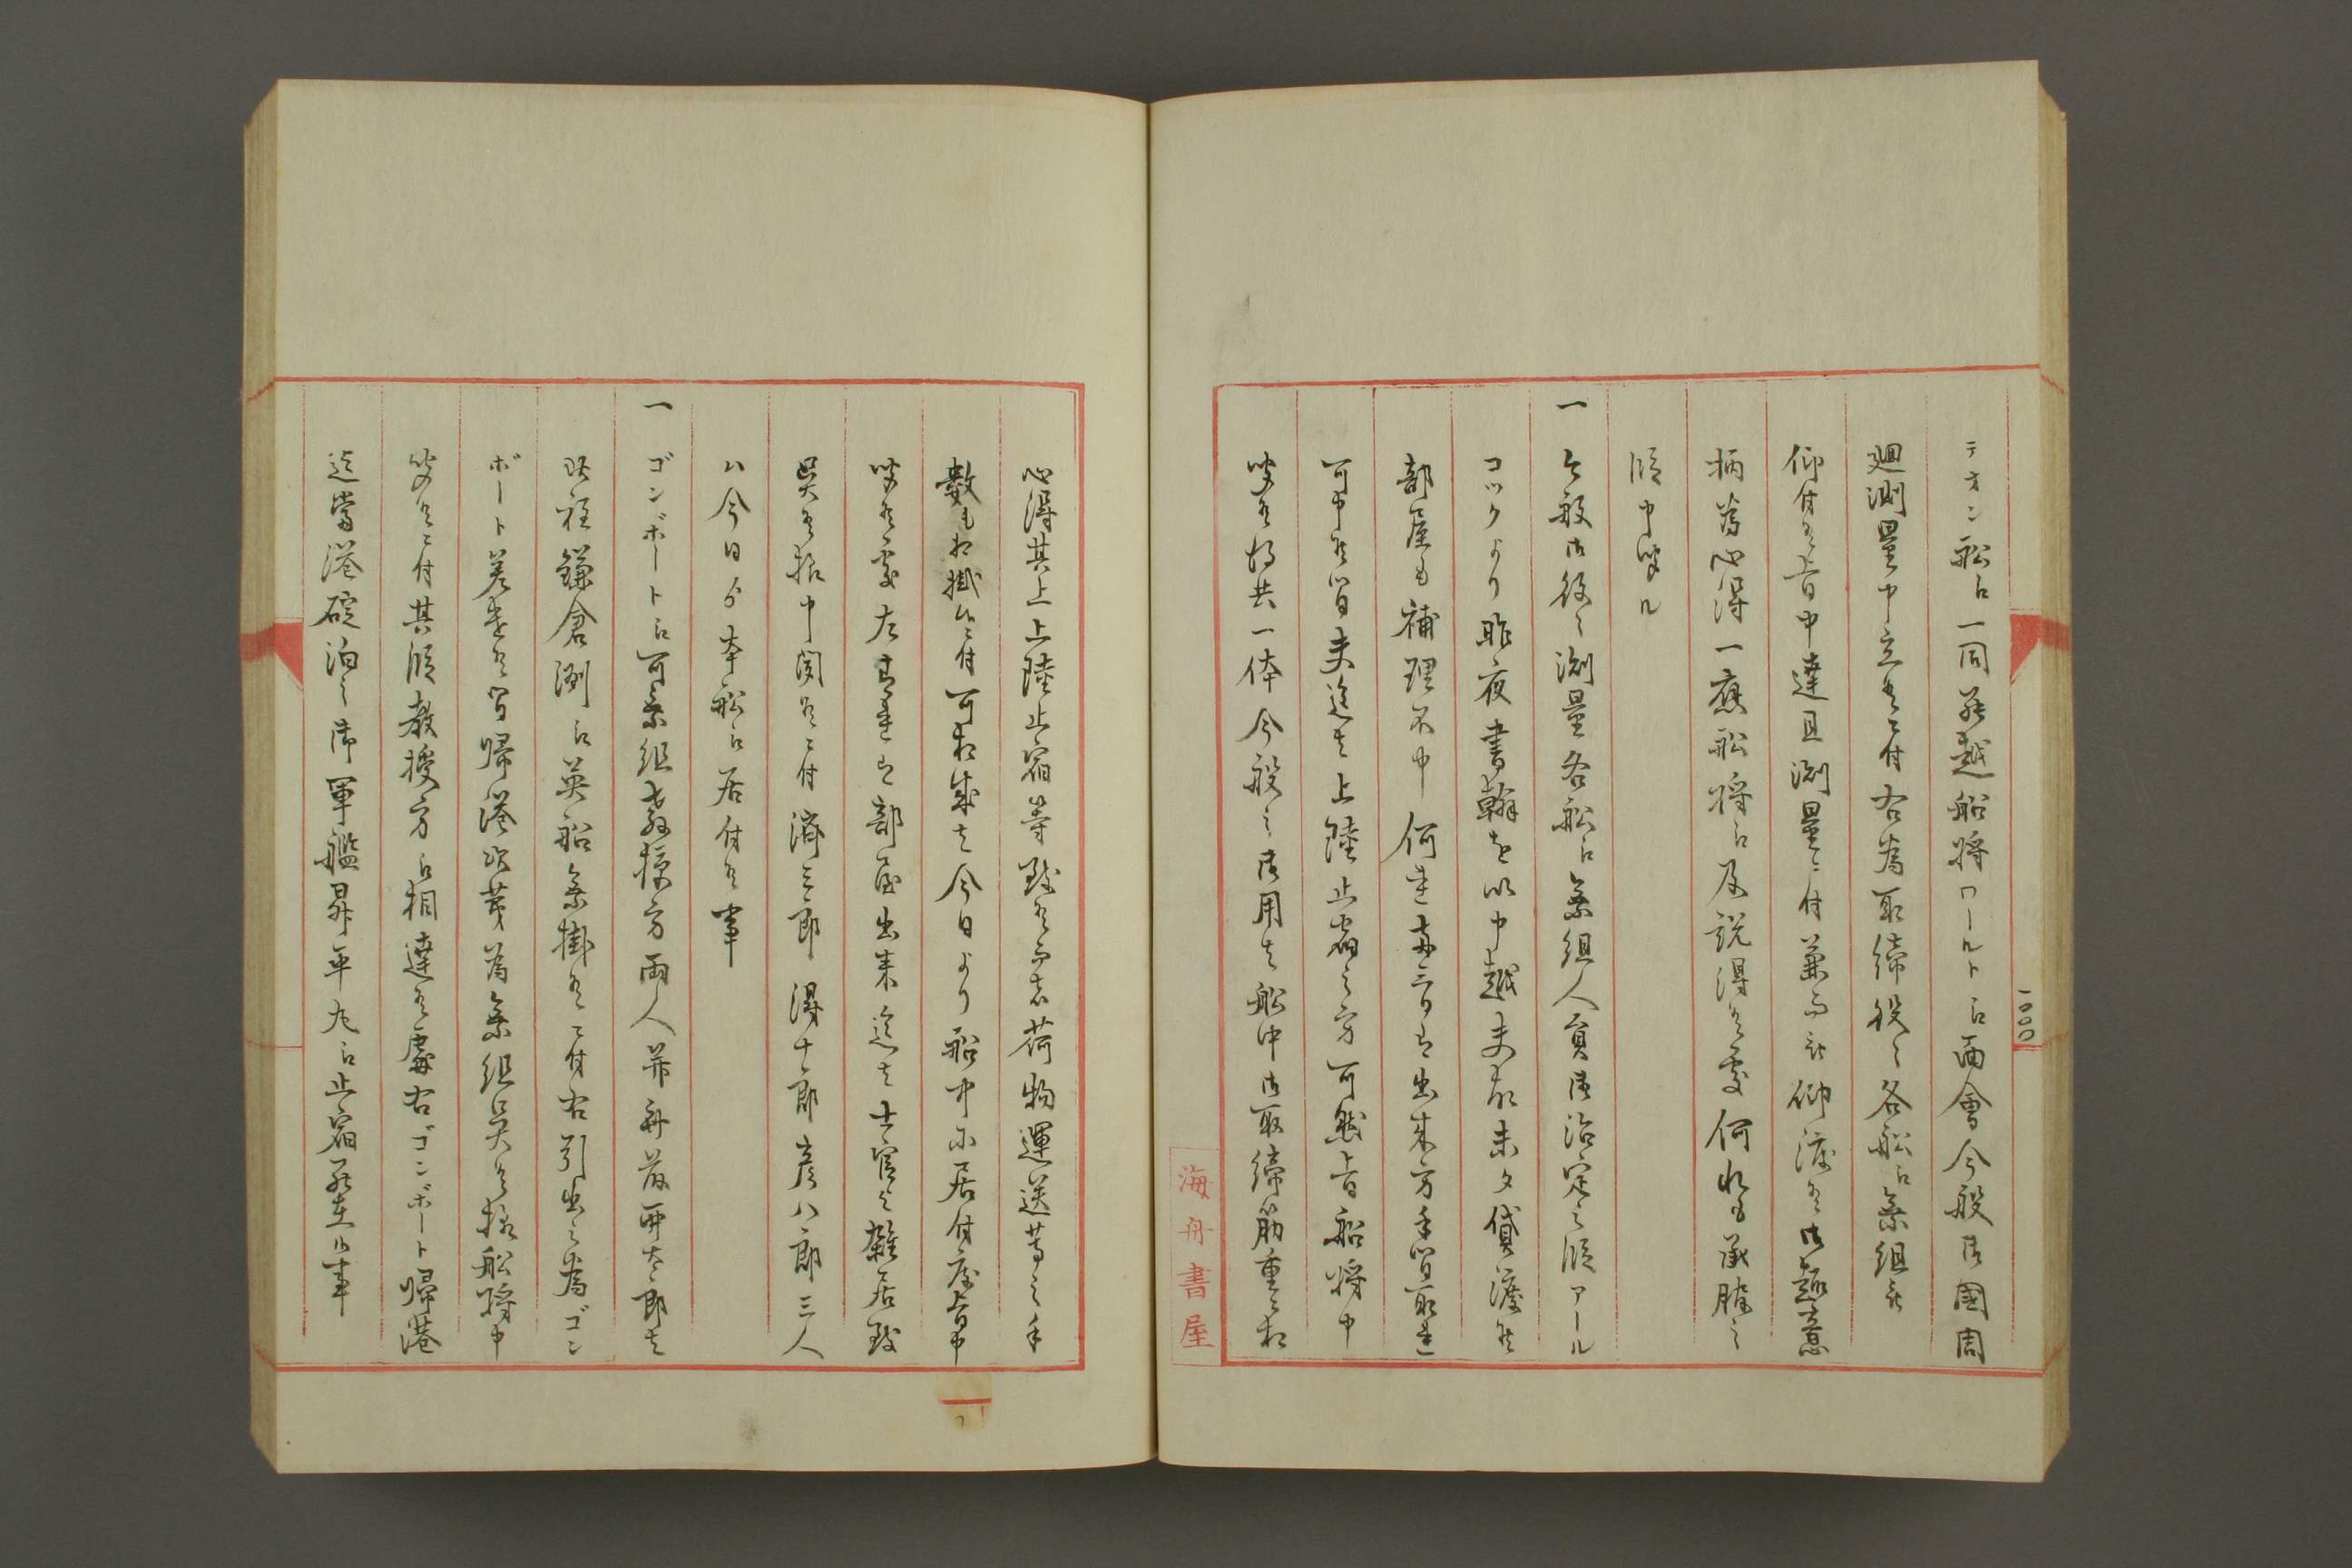 テオン船江一同罷越船将ワールト江面會今般御國周
廻測量申立候ニ付右為取締役々各船江乗組被
仰付候旨申達且測量ニ付兼而被仰渡候御趣意
柄為心得一應船将江及説得候處何れも承脂之
順申聞ル
一今般御役々測量各船江乗組人員御治定之順アール
コックより昨夜書翰を以申越未夕貸渡候
部屋も補理不申何連両三日は出来方手間取
可申候間夫迄者上陸止宿之方可然旨船将申
聞候得共一体今般之御用者船中御取締筋重之
心得其上上陸止宿等致候而者荷物運送等之手
數も相掛候ニ付可相成者今日より船中ニ居付度旨申
聞候處左候ハ部屋出来迄者士官と雑居致
呉候様申聞候ニ付済三郎得十郎彦八郎三人
ハ今日ゟ本船江居付候事
一ゴンボート江可乗組教授方両人并
此程鎌倉渕江英船乗掛候ニ付右引出之為ゴン
ボート差遣候間帰港次第為乗組呉候様船将申
聞候ニ付其順教授方江相達候處右ゴンボート帰港
迄當港碇泊之御軍艦昇平丸江止宿罷在候事
海舟書屋